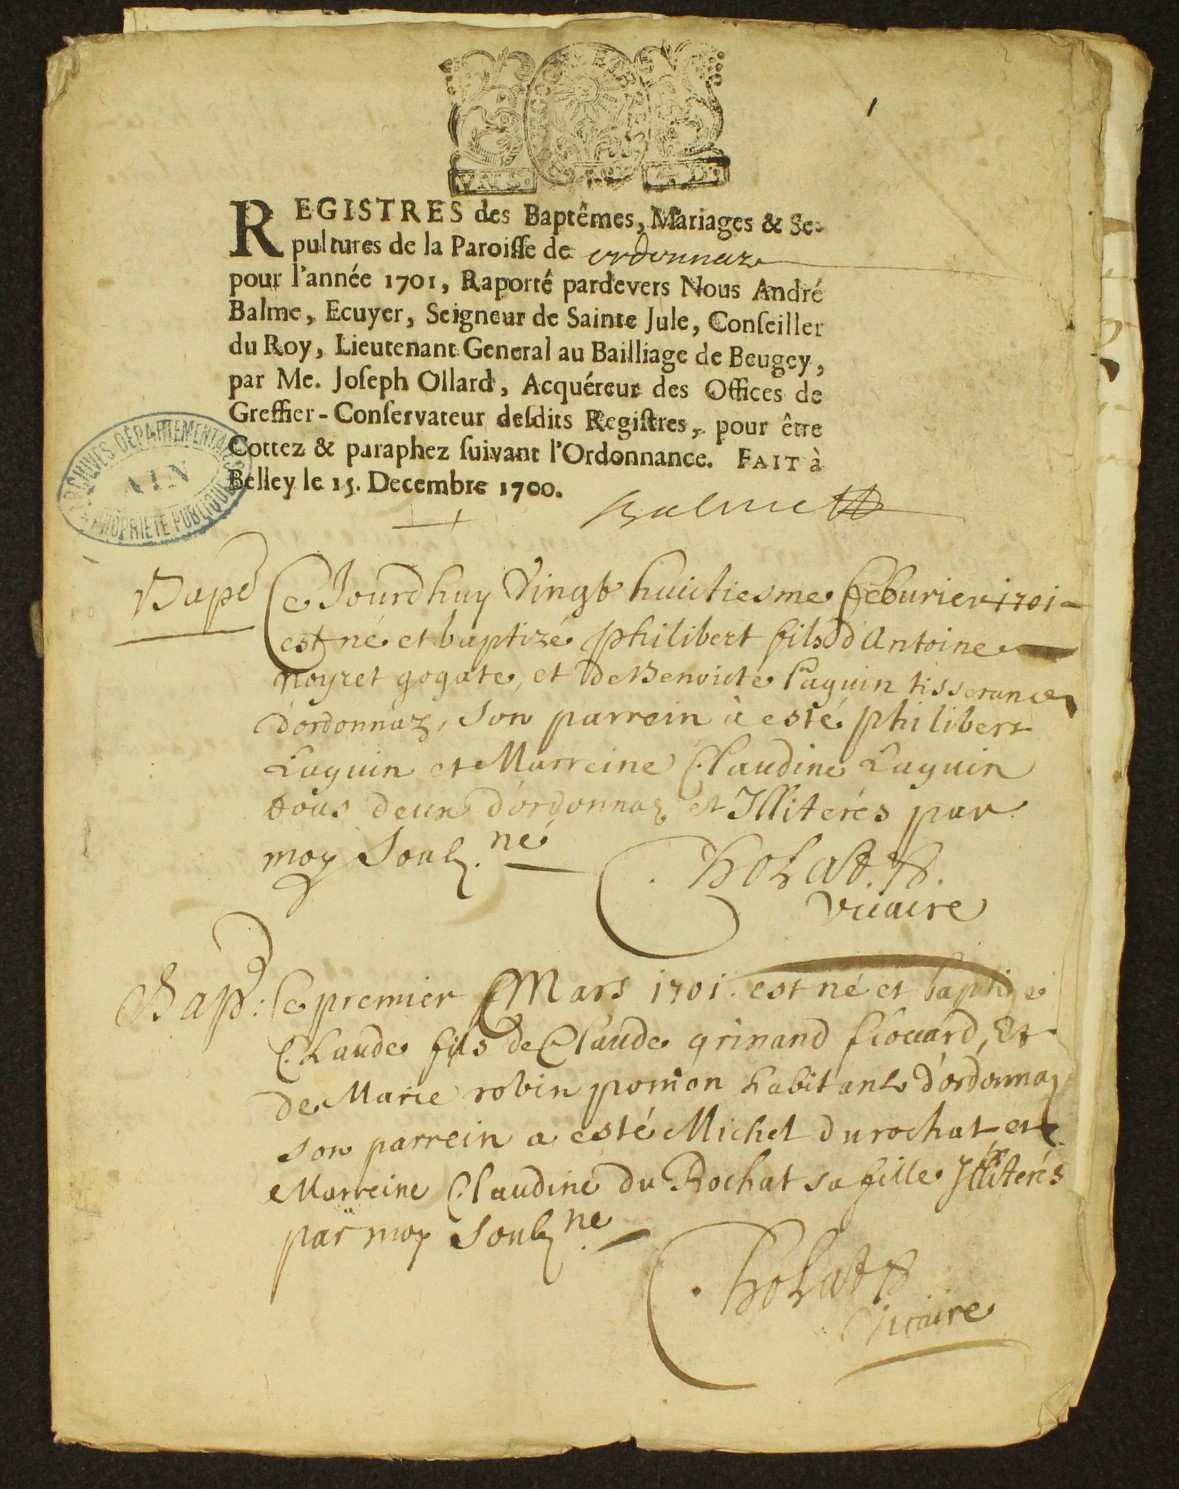 1
REGISTRES des Baptêmes, Mariages & Se-
pultures de la Paroisse de ordonnaz
pour l'année 1701, Raporté pardevers Nous André
Balme, Ecuyer, Seigneur de Sainte Jule, Conseiller
du Roy, Lieutenant General au Bailliage de Beugey,
par Me. Joseph Ollard, Acquéreur des Offices de
Greffier-Conservateur desdits Registres, pour être
Cottez & paraphez suivant l'Ordonnance. FAIT à
Belley le 15. Decembre 1700.
Balme
ARCHIVES DÉPARTEMENTALES
AIN
PROPRIÉTÉ PUBLIQUE
Bapt Ce Jourdhuy Vingt huictiesme feburier 1701
est né et baptizé philibert fils d'Antoine
poyret gogate, et de Benoicte Laguin tisserands
d'ordonnaz, son parrein à esté philibert
Laguin et Marreine Claudine Laguin
tous deux d'ordonnaz et Illiterés par
moy Soub.né
Cholat
vicaire
Bapt: Le premier Mars 1701. est né et baptizé
Claude fils de Claude grinand flouard, Et
de Marie robin pomon habitants d'ordonnaz
son parrein a esté Michel durochat et
Marreine Claudine du Rochat sa fille Illiterés
par moy Soub.ne
Cholat
Vicaire